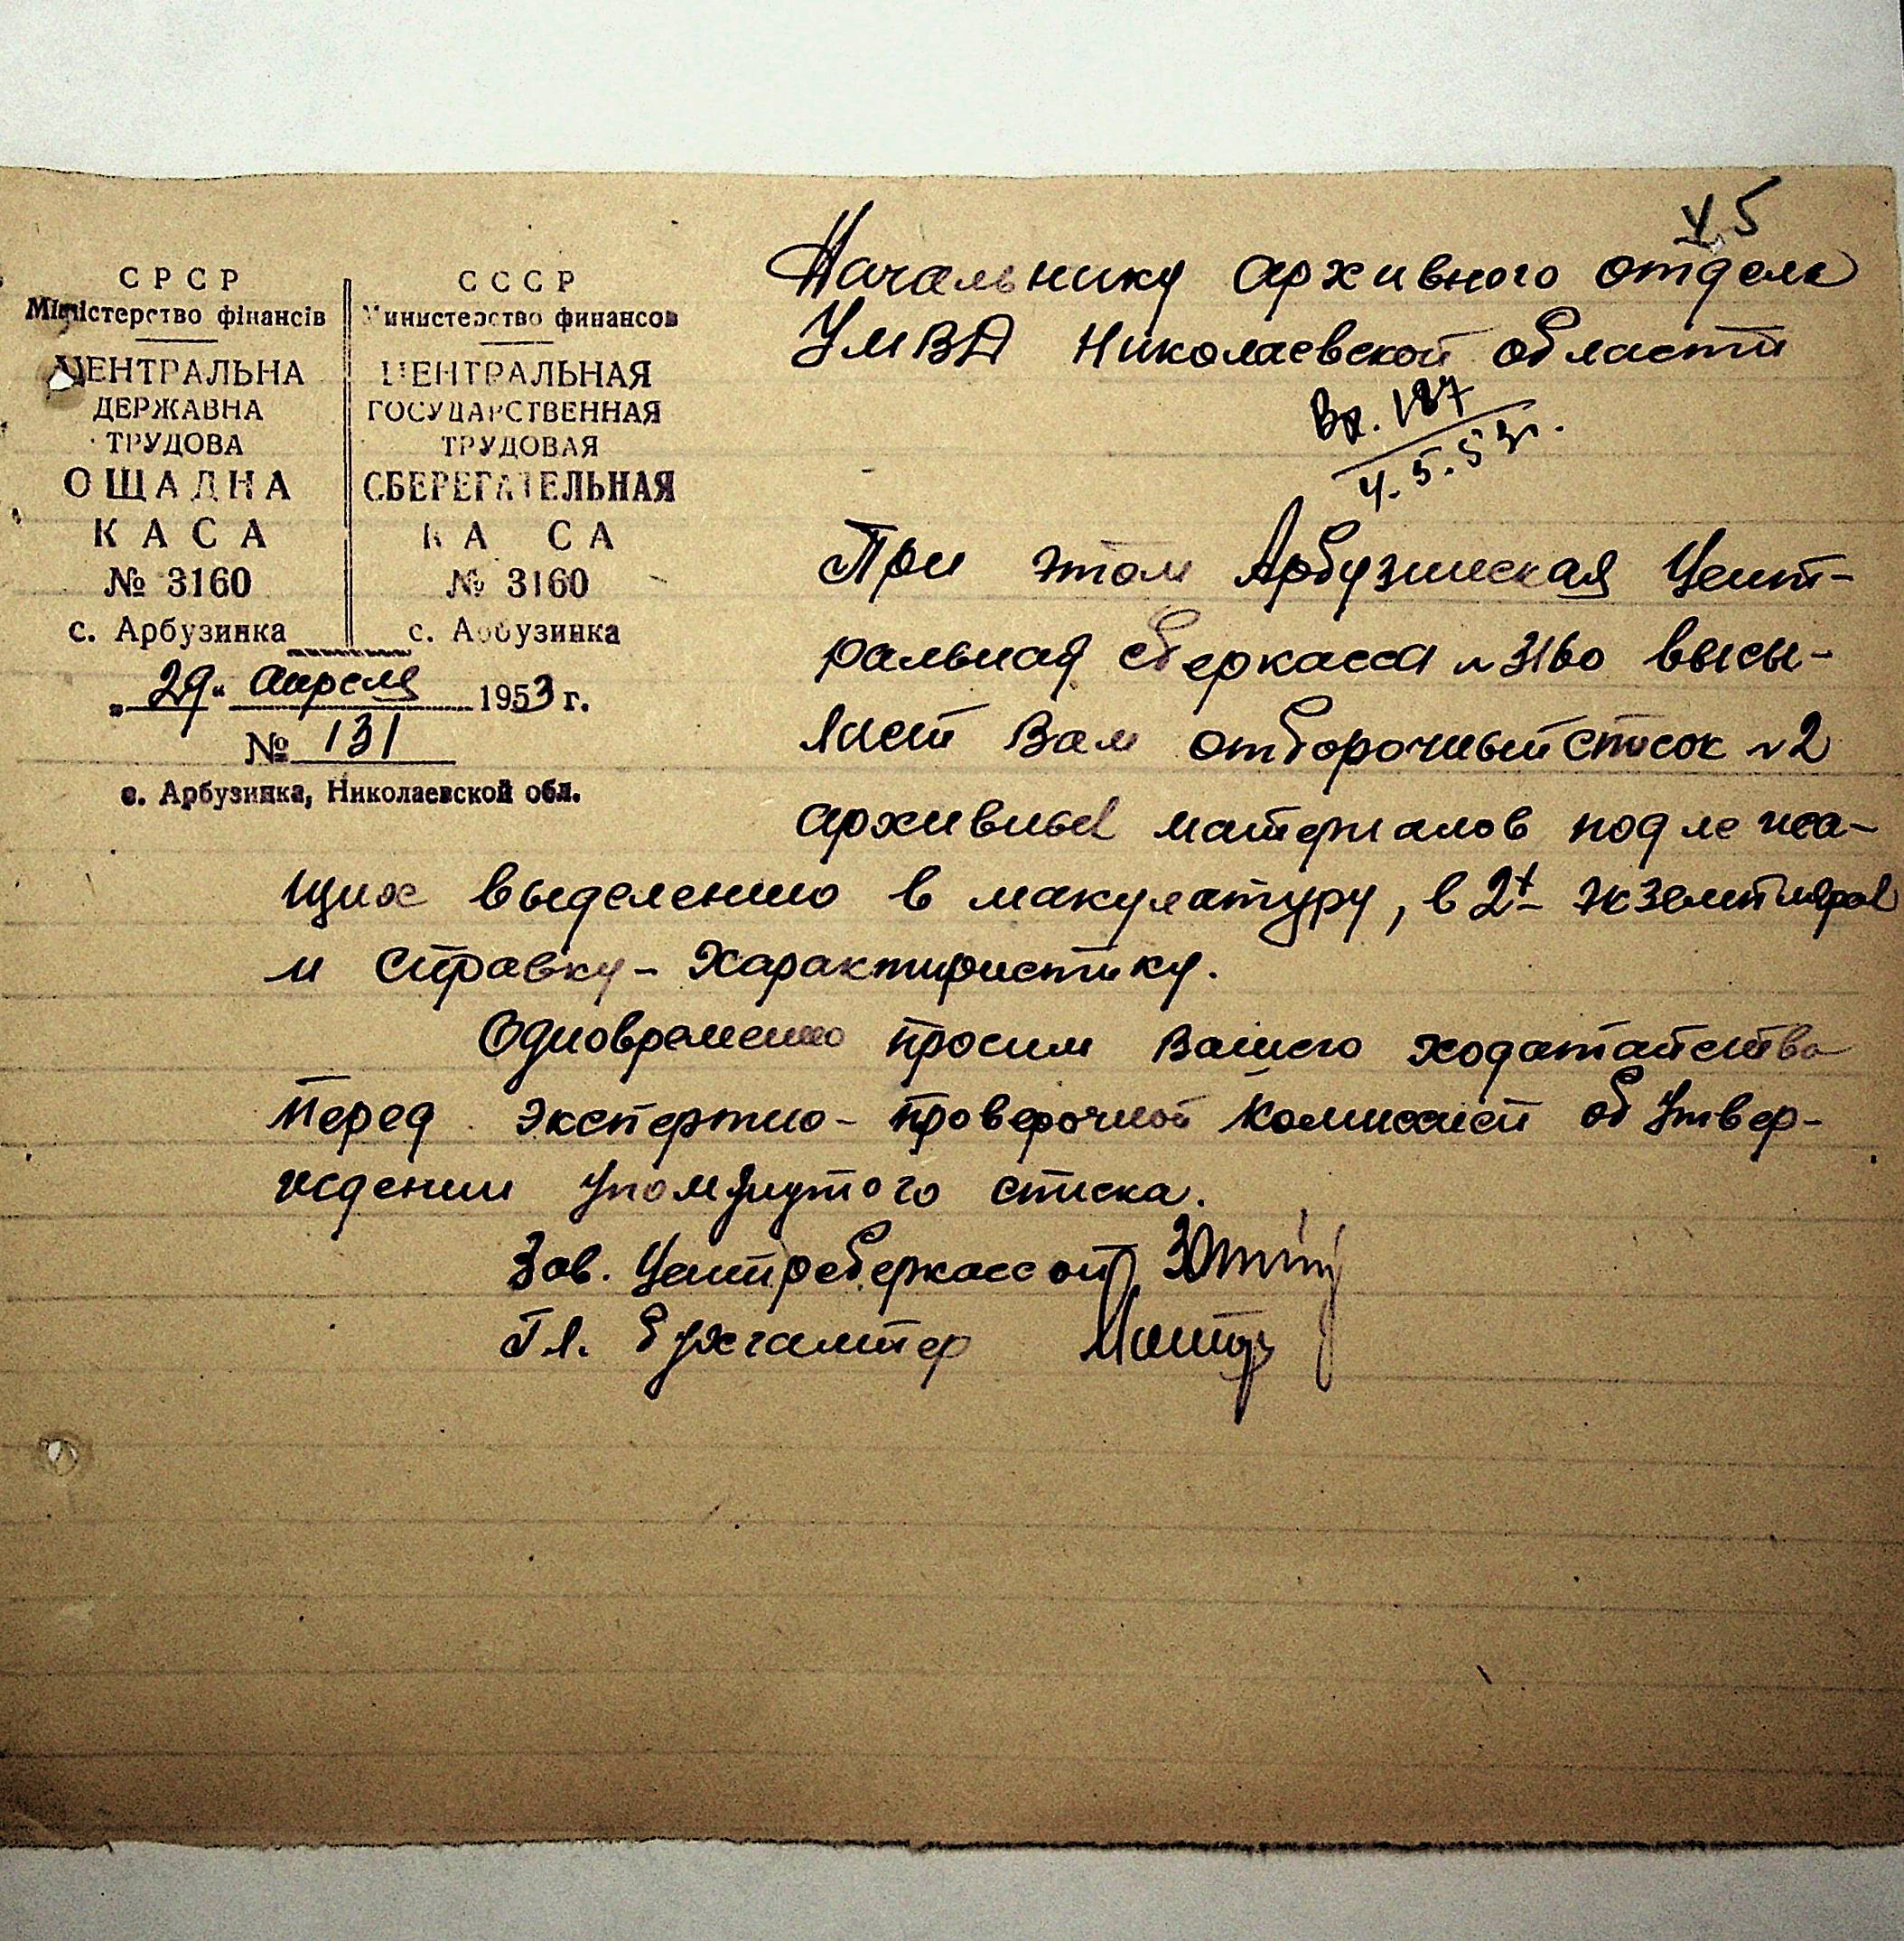 5
СРСР
Міністерство фінансів
ЦЕНТРАЛЬНА
ДЕРЖАВНА
ТРУДОВА
ОЩАДНА
КАСА
№ 3160
с. Арбузинка
СССР
Министерство финансов
ЦЕНТРАЛЬНАЯ
ГОСУДАРСТВЕННАЯ
ТРУДОВАЯ
СБЕРЕГАТЕЛЬНАЯ
КАССА
№ 3160
с. Арбузинка
„29" апреля 1953 г.
№ 131
с. Арбузинка, Николаевской обл.
Начальнику архивного отдела
УМВД Николаевской области
Вх. 187
4.5.53г.
При этом Арбузинская Цент-
ральная сберкасса № 3160 высы-
лает Вам отборочный список № 2
архивных материалов подлежа-
щих выделению в макулатуру, в 2х экземплярах
и справку-характиристику.
Одновременно просим Вашего ходатайства
перед экспертно-проверочной комиссией об утвер-
ждении упомянутого списка.
Зав. Центросберкассой
Гл. бухгалтер